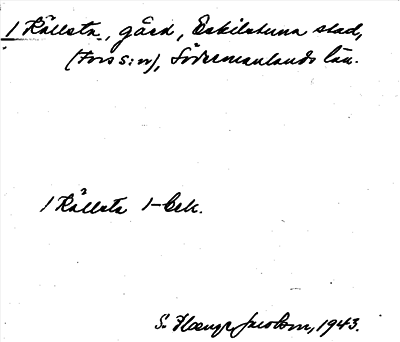 1 Källsta, gård, Eskilstuna stad,
(Fors s:n), Södermanlands län.
1 Källsta 1-bek.
S. Jacobson, 1943.